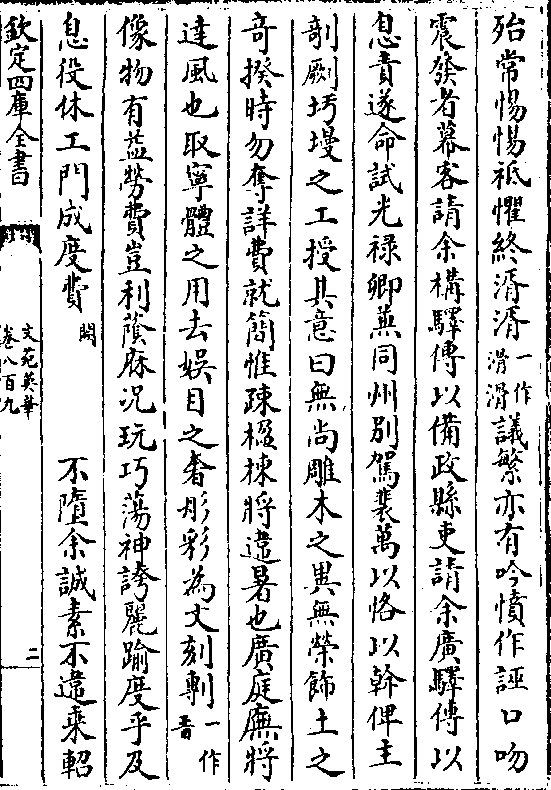 殆常惕惕祗懼終湑湑一作滑滑議繁亦有吟憤作誣口吻
震發者幕客請余構驛傳以備政縣吏請余廣驛傳以
息責遂命試光禄卿兼同州別駕裴萬以恪以幹俾主
剞劂圬墁之工授其意曰無尚雕木之異無榮飾土之
奇揆時勿奪詳費就簡惟疎楹棟將違暑也廣庭廡將
達風也取寧體之用去娯目之奢彤彩為文刻剸一作
像物有葢勞費豈利蔭庥况玩巧蕩神誇麗踰度乎及
息役休工門成度費闕不隳余誠素不違乗軺
欽定四庫全書
文苑英華
卷八百九
二